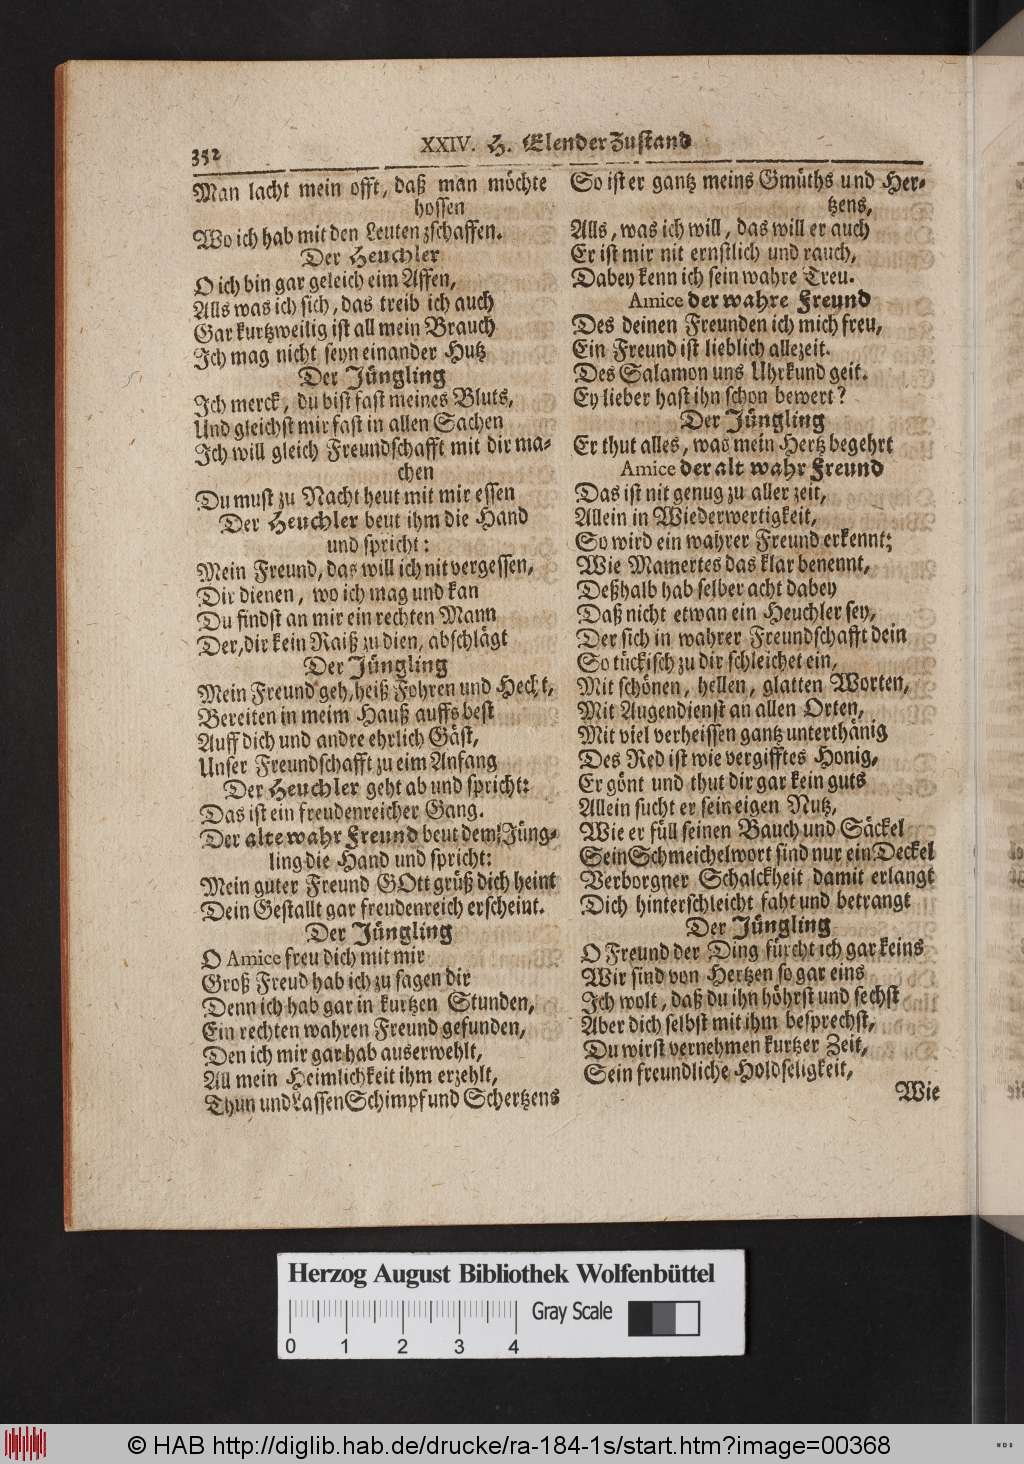 352
XXIV. H. Elender Zustand
Man lacht mein offt, daß man möchte
hossen
Wo ich hab mit den Leuten zschaffen.
Der Heuchler
O ich bin gar geleich eim Affen,
Alls was ich sich, das treib ich auch
Gar kurtzweilig ist all mein Brauch
Ich mag nicht seyn einander Hutz
Der Jüngling
Ich merck, du bist fast meines Bluts,
Und gleichst mir fast in allen Sachen
Ich will gleich Freundschafft mit dir ma-
chen
Du must zu Nacht heut mit mir essen
Der Heuchler beut ihm die Hand
und spricht:
Mein Freund, das will ich nit vergessen,
Dir dienen, wo ich mag und kan
Du findst an mir ein rechten Mann
Der, dir kein Raiß zu dien, abschlägt
Der Jüngling
Mein Freund geh, heiß Fohren und Hecht,
Bereiten in meim Hauß auffs best
Auff dich und andre ehrlich Gäst,
Unser Freundschafft zu eim Anfang
Der Heuchler geht ab und spricht:
Das ist ein freudenreicher Gang.
Der alte wahr Freund beut dem Jüng-
ling die Hand und spricht:
Mein guter Freund GOtt grüß dich heint
Dein Gestallt gar freudenreich erscheint.
Der Jüngling
O Amice freu dich mit mir
Groß Freud hab ich zu sagen dir
Denn ich hab gar in kurtzen Stunden,
Ein rechten wahren Freund gefunden,
Den ich mir gar hab auserwehlt,
All mein Heimlichkeit ihm erzehlt,
Thun und Lassen Schimpf und Schertzens
So ist er gantz meins Gmüths und Her-
tzens,
Alls, was ich will, das will er auch
Er ist mir nit ernstlich und rauch,
Dabey kenn ich sein wahre Treu.
Amice der wahre Freund
Des deinen Freunden ich mich freu,
Ein Freund ist lieblich allezeit.
Des Salamon uns Uhrkund geit.
Ey lieber hast ihn schon bewert?
Der Jüngling
Er thut alles, was mein Hertz begehrt
Amice der alt wahr Freund
Das ist nit genug zu aller zeit,
Allein in Wiederwertigkeit,
So wird ein wahrer Freund erkennt;
Wie Mamertes das klar benennt,
Deßhalb hab selber acht dabey
Daß nicht etwan ein Heuchler sey,
Der sich in wahrer Freundschafft dein
So tückisch zu dir schleichet ein,
Mit schönen, hellen, glatten Worten,
Mit Augendienst an allen Orten,
Mit viel verheissen gantz unterthänig
Des Red ist wie vergifftes Honig,
Er gönt und thut dir gar kein guts
Allein sucht er sein eigen Nutz,
Wie er füll seinen Bauch und Säckel
Sein Schmeichelwort sind nur ein Deckel
Verborgner Schalckheit damit erlangt
Dich hinterschleicht faht und betrangt
Der Jüngling
O Freund der Ding fürcht ich gar keins
Wir sind von Hertzen so gar eins
Ich wolt, daß du ihn höhrst und sechst
Aber dich selbst mit ihm besprechst,
Du wirst vernehmen kurtzer Zeit,
Sein freundliche Holdseligkeit,
Wie
Herzog August Bibliothek Wolfenbüttel
Gray Scale
0 1 2 3 4
© HAB http://diglib.hab.de/drucke/ra-184-1s/start.htm?image=00368